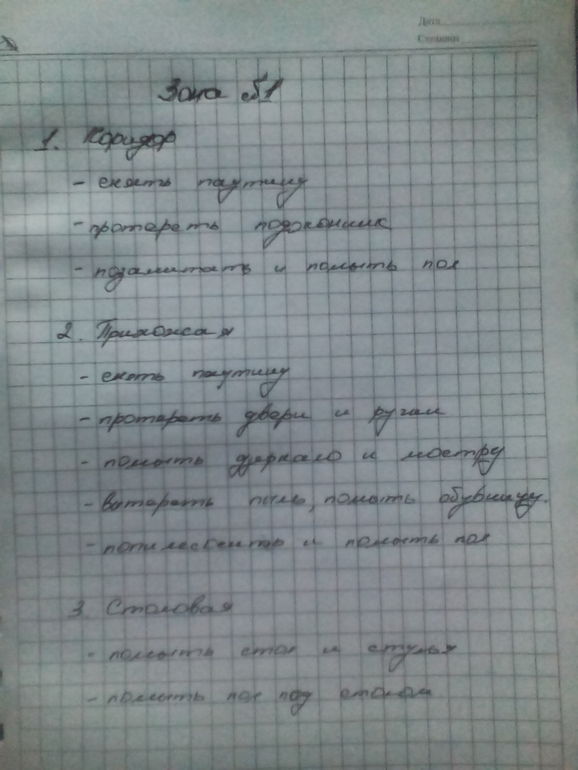 Дата
Зона №1
1. Коридор
- снять паутину
- протереть подоконник
- позаметать и помыть пол
2. Прихожая
- снять паутину
- протереть двери и ручки
- помыть дзеркало и люстру
- вытереть пыль, помыть обувницу.
- попилесосить и помыть пол
3 Столовая
- помыть стол и стулья
- помыть пол под столом